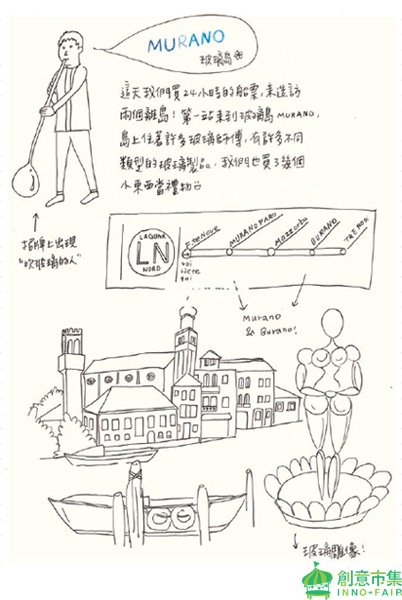 MURANO
玻璃島
這天我們買24小時的船票,來造訪
兩個離島!第一站來到玻璃島MURANO,
島上住著許多玻璃師傅,有許多不同
類型的玻璃製品,我們也買了幾個
小東西當禮物。
招牌上出現
"吹玻璃的人"
LAGUNA
LN
NORD
F.TENOVE
MURANO FARO
MAZZORBO
BURANO
TREPORTI
Murano
& Burano!
玻璃雕像!
創意市集
INNO-FAIR